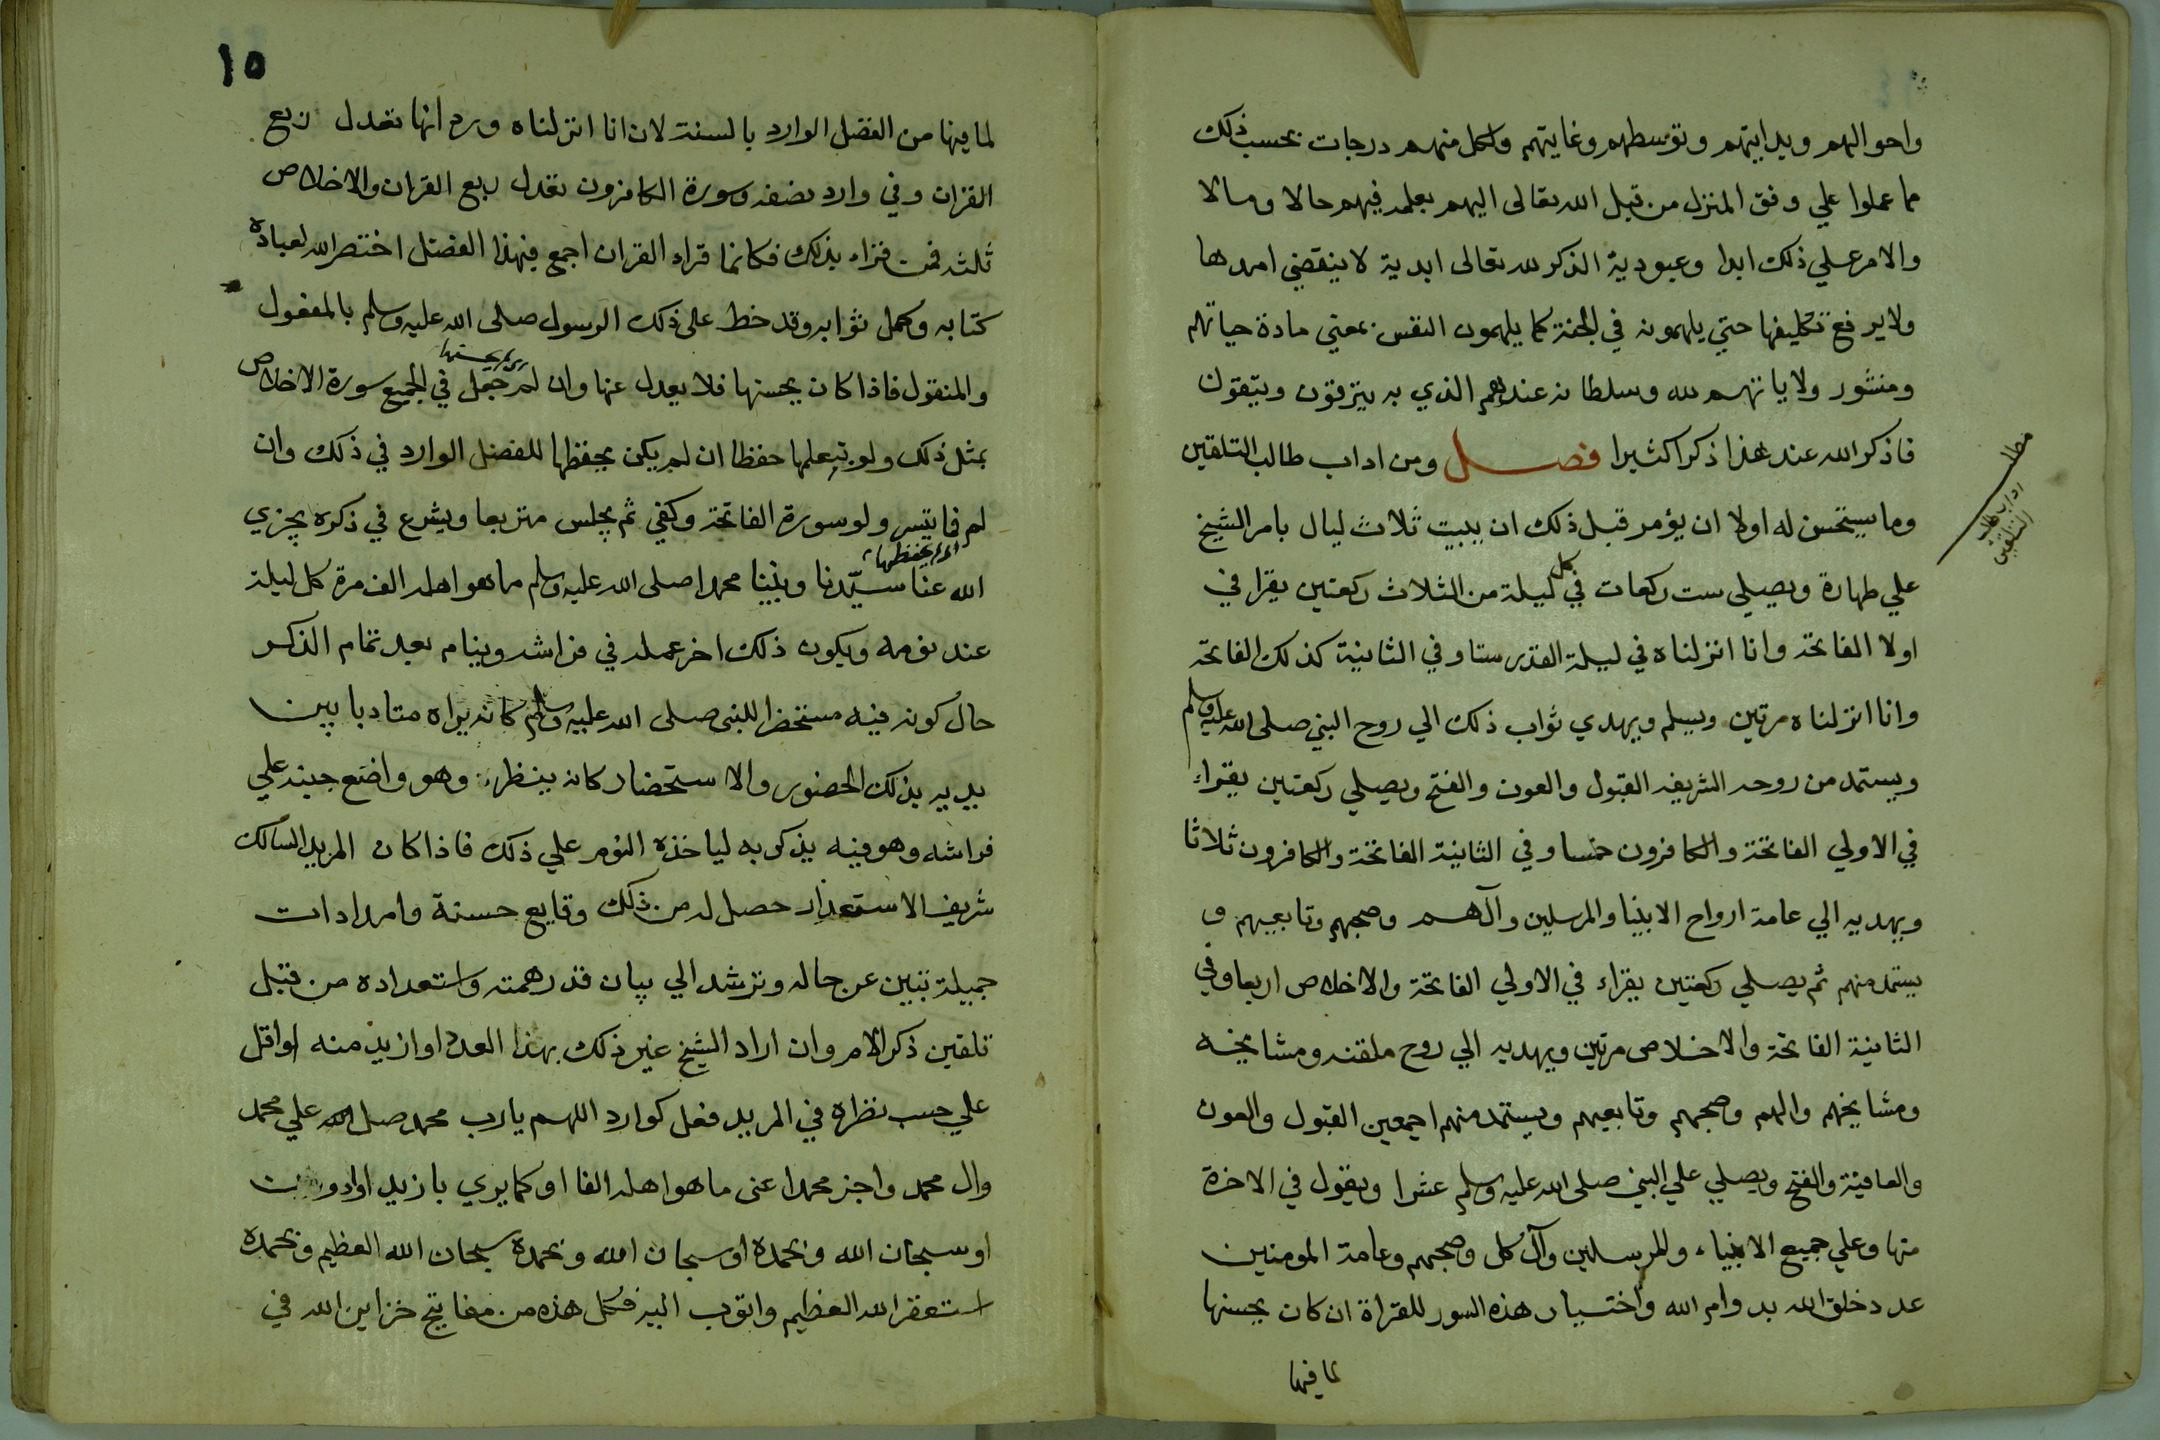 واحوالهم وبدايتهم وتوسطهم وغايتهم ولكل منهم درجات بحسب ذلك
مما عملوا علي وفق المنزل من قبل الله تعالى اليهم بعلمه فيهم حالا ومالا
والامر علي ذلك ابدا وعبودية الذكر لله تعالى ابدية لا ينقضي امدها
ولا يرفع تكليفها حتي يلهمونه في الجنة كما يلهمون النفس بمعني مادة حياتهم
ومنشور ولاياتهم لله وسلطانه عندهم الذي به يترقون ويتقون
فاذكر الله عند هذا ذكرا كثيرا فصل ومن اداب طالب التلقين
مطلب
اداب طالب
التلقين
وما يستحسن له اولا ان يؤمر قبل ذلك ان يبيت ثلاث ليال بامر الشيخ
علي طهارة ويصلي ست ركعات في كل ليلة من الثلاث ركعتين يقرا في
اولا الفاتحة وانا انزلناه في ليلة القدر ستا وفي الثانية كذلك الفاتحة
وانا انزلناه مرتين ويسلم ويهدي ثواب ذلك الي روح النبي صلى الله عليه وسلم
ويستمد من روحه الشريفه القبول والعون والفتح ويصلي ركعتين يقراء
في الاولي الفاتحة والكافرون خمسا وفي الثانية الفاتحة والكافرون ثلاثا
ويهديه الي عامة ارواح الانبيا والمرسلين وآلهم وصحبهم وتابعيهم و
يستمد منهم ثم يصلي ركعتين يقراء في الاولي الفاتحة والاخلاص اربعا وفي
الثانية الفاتحة والاخلاص مرتين ويهديه الي روح ملقنه ومشايخه
ومشايخهم والهم وصحبهم وتابعيهم ويستمد منهم اجمعين القبول والعون
والعافية والفتح ويصلي علي النبي صلى الله عليه وسلم عشرا ويقول في الاخرة
منها وعلي جميع الانبياء والمرسلين وآل كل وصحبهم وعامة المومنين
عدد خلق الله بدوام الله واختيار هذه السور للقراة ان كان يحسنها
لما فيها
١٥
لما فيها من الفضل الوارد بالسنة لان انا انزلناه ورد انها تعدل ربع
القران وفي وارد نصفه وسورة الكافرون تعدل ربع القران والاخلاص
ثلثه فمن قراء بذلك فكانما قراء القران اجمع فبهذا الفضل اختصر الله لعباده
كتابه وكمل ثوابه وقد خط على ذلك الرسول صلى الله عليه وسلم بالمعقول
والمنقول فاذا كان يحسنها فلا يعدل عنها وان لم يكن يحسنها جعل في الجميع سورة الاخلاص
بمثل ذلك ولو بتعلمها حفظا ان لم يكن يحفظها للفضل الوارد في ذلك وان
لم يحفظها فما تيسر ولو سورة الفاتحة وكفي ثم يجلس متربعا ويشرع في ذكره يجزي
الله عنا سيّدنا ونبينا محمدا صلى الله عليه وسلم ما هو اهله الف مرة كل ليلة
عند نومه ويكون ذلك اخر عمله في فراشه وينام بعد تمام الذكر
حال كونه فيه مستحضرا للنبي صلى الله عليه وسلم كانه يراه متادبا بين
يديه بذلك الحضور والاستحضار كانه ينظره وهو واضع جنبه علي
فراشه وهو فيه يذكر به لياخذه النوم علي ذلك فاذا كان المريد السالك
شريف الاستعداد حصل له من ذلك وقايع حسنة وامدادات
جميلة تبين عن حاله وترشد الي بيان قدر همته واستعداده من قبل
تلقين ذكر الامر وان اراد الشيخ غير ذلك بهذا العدد او ازيد منه او اقل
علي حسب نظره في المريد فعل كوارد اللهم يا رب محمد صل الله علي محمد
وال محمد واجز محمدا عني ما هو اهله الفا او كما يري بازيد او ادون
او سبحان الله وبحمده او سبحان الله وبحمده سبحان الله العظيم وبحمده
استغفر الله العظيم واتوب اليه فكل هذه من مفاتيح خزاين الله في